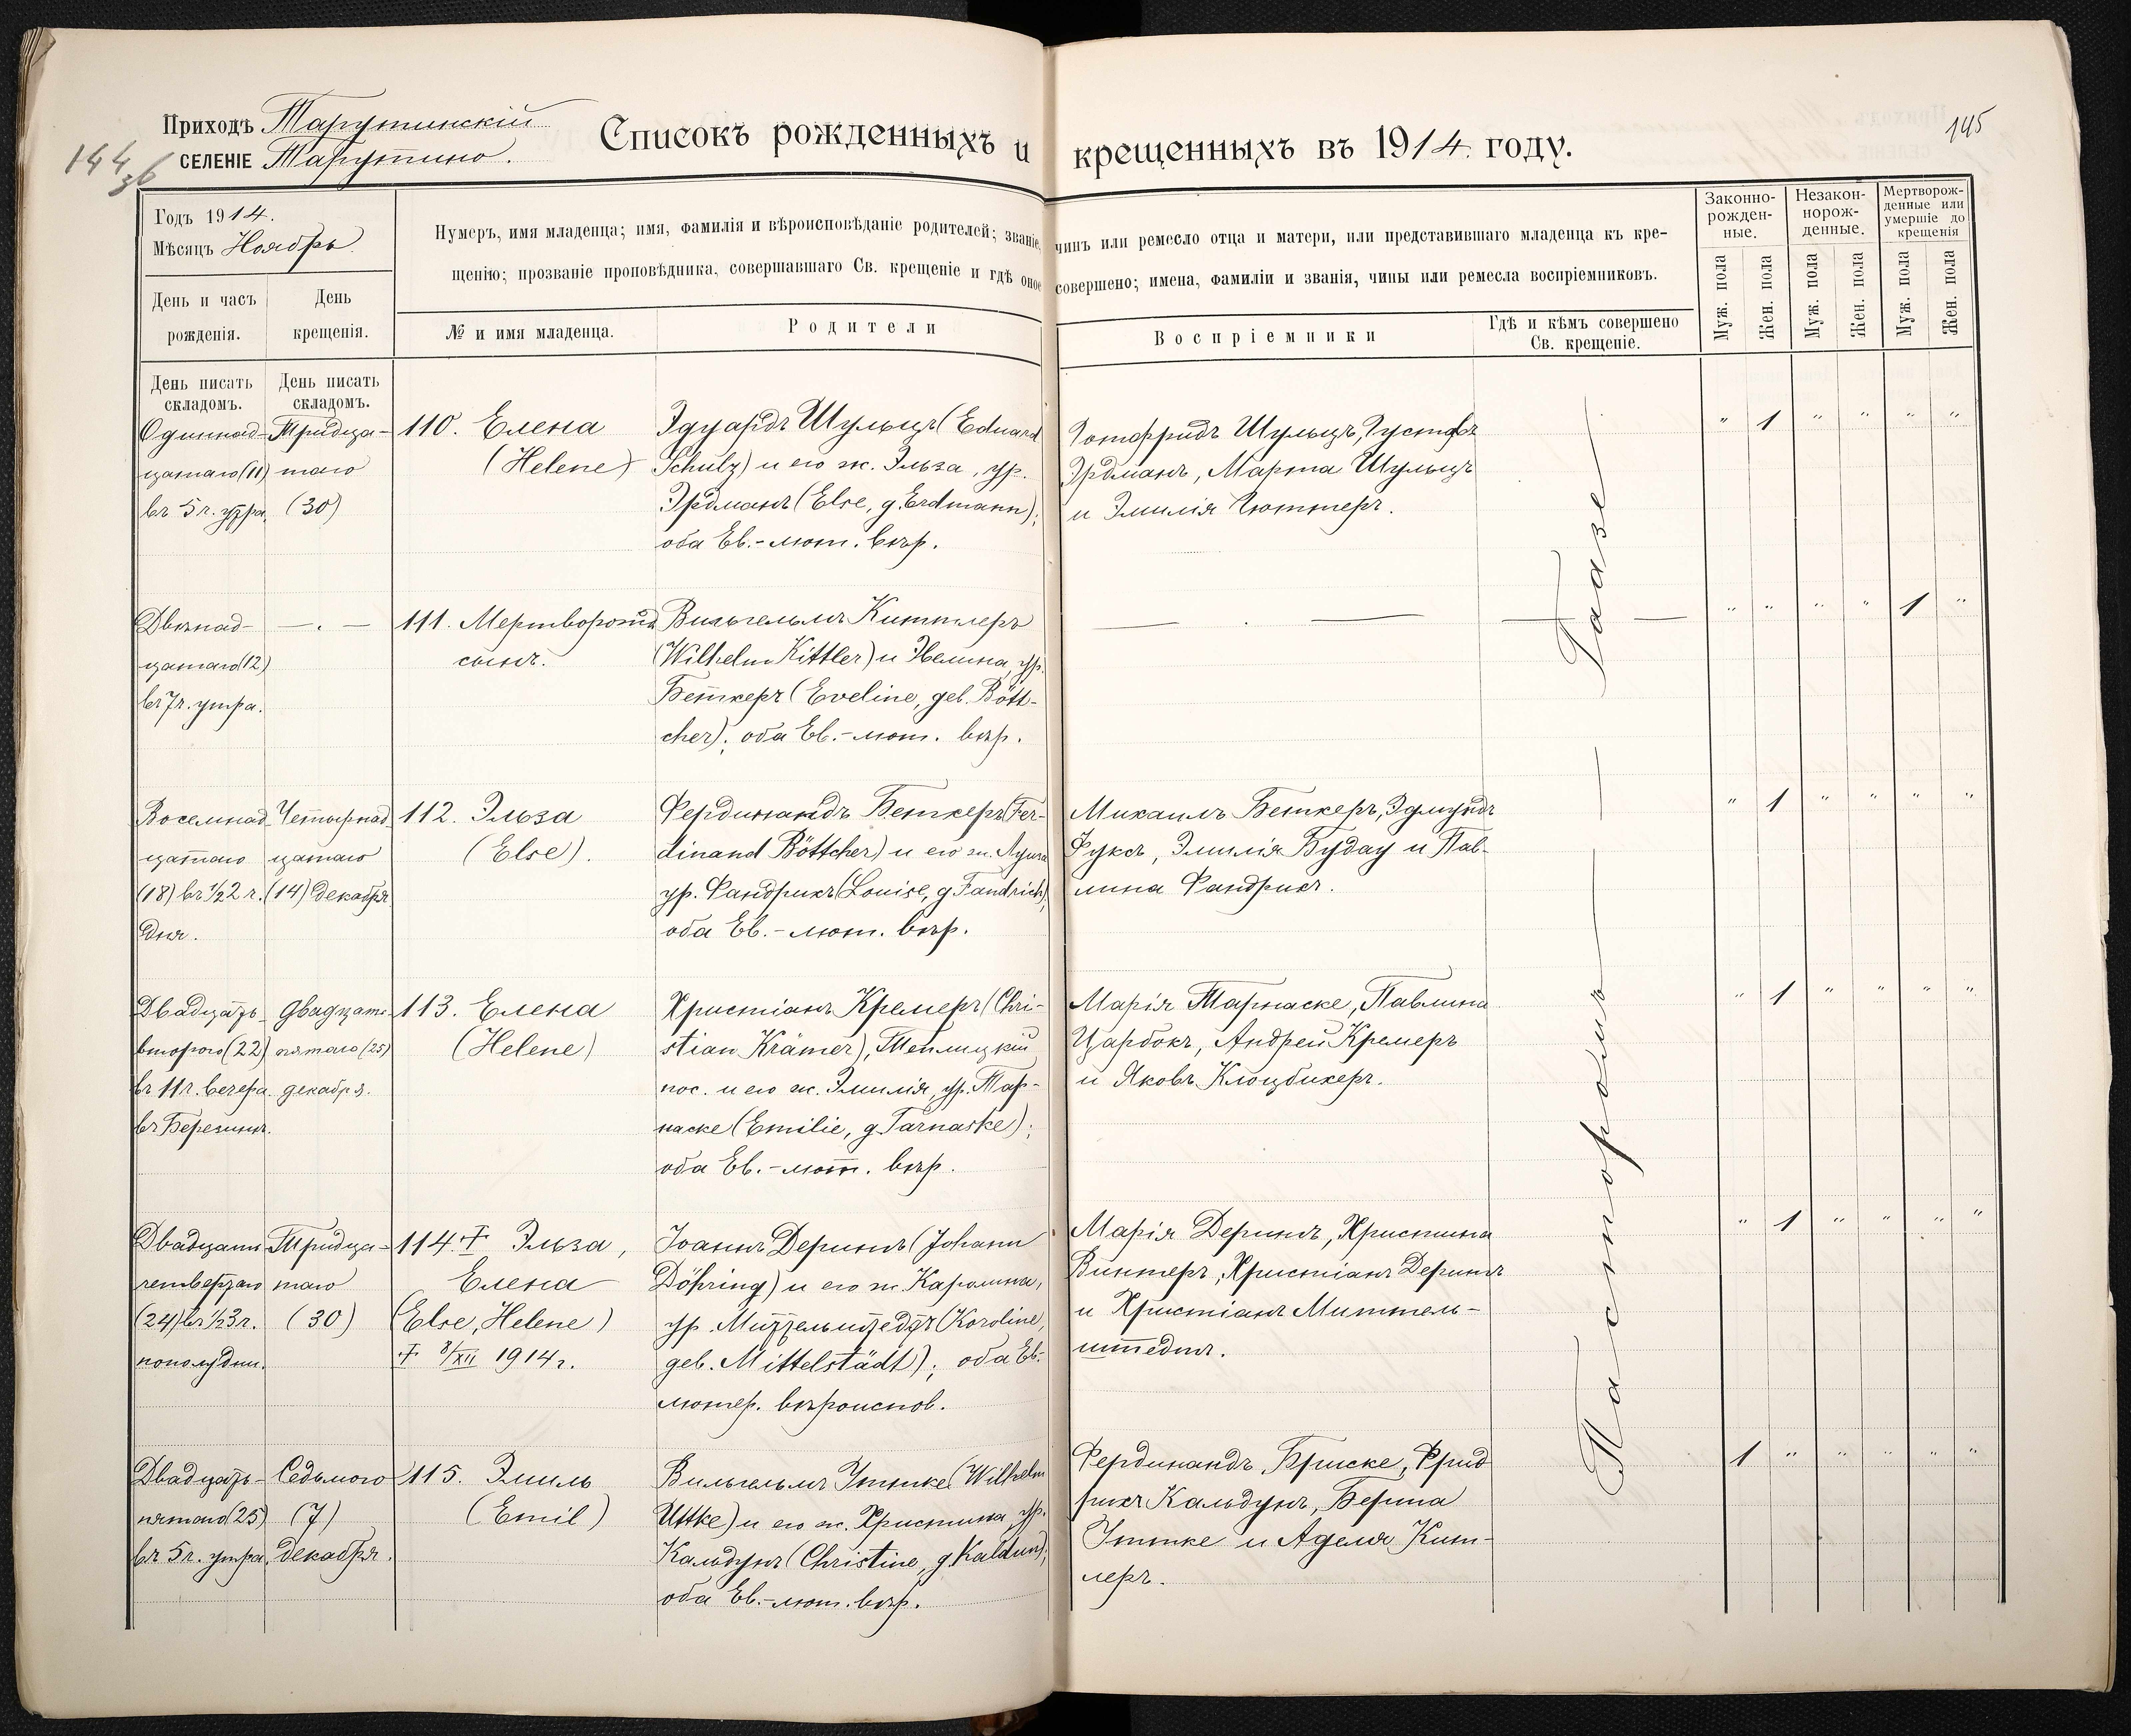 Приходъ Тарутинскій
селеніе Тарутино.
144
36
Списокъ рожденныхъ и крещенныхъ въ 1914. году.
145
Годъ 1914.
Мѣсяцъ Ноябрь
Нумеръ, имя младенца; имя, фамилія и вѣроисповѣданіе родителей; званіе, чинъ или ремесло отца и матери, или представившаго младенца къ кре-
щенію; прозваніе проповѣдника, совершавшаго Св. крещеніе и гдѣ оное совершено; имена, фамиліи и званія, чины или ремесла воспріемниковъ.
День и часъ
рожденія.
День
крещенія.
№ и имя младенца.
Родители
Воспріемники
Гдѣ и кѣмъ совершено
Св. крещеніе.
Законно-
рожден-
ные.
Незакон-
норож-
денные.
Мертворож-
денные или
умершіе до
крещенія
Муж. пола
Жен. пола
Муж. пола
Жен. пола
Муж. пола
Жен. пола
День писать
складомъ.
День писать
складомъ.
Одиннад-
цатаго (11)
въ 5 ч. утра.
Тридца-
таго
(30)
110. Елена
(Helene)
Эдуардъ Шульцъ (Eduard
Schulz) и его ж. Эльза, ур.
Эрдманъ (Else, g. Erdmann);
оба Ев.-лют. вѣр.
Готфридъ Шульцъ, Густавъ
Эрдманъ, Марта Шульцъ
и Эмилія Гюттнеръ.
" 1 " " " "
Двѣнад-
цатаго (12)
въ 7 ч. утра.
— . —
111. Мертворожд.
сынъ.
Вильгельмъ Киттлеръ
(Wilhelm Kittler) и Эвелина, ур.
Беткеръ (Eveline, geb. Bött-
cher); оба Ев.-лют. вѣр.
" " " " 1 "
Восемнад-
цатаго
(18) въ ½2 ч.
дня.
Четырнад-
цатаго
(14) декабря
112. Эльза
(Else).
Фердинандъ Беткеръ (Fer-
dinand Böttcher) и его ж. Луиза
ур. Фандрихъ (Louise, g Fandrich);
оба Ев.-лют. вѣр.
Михаилъ Беткеръ, Эдмундъ
Фуксъ, Эмилія Будау и Пав-
лина Фандрихъ.
" 1 " " " "
Двадцать
второго (22)
въ 11 ч. вечера.
въ Березинѣ.
Двадцать
пятаго (25)
декабря.
113. Елена
(Helene)
Христіанъ Кремеръ (Chri-
stian Krämer), Теплицкій
пос. и его ж. Эмилія, ур. Тар-
наске (Emilie, g. Tarnaske);
оба Ев.-лют. вѣр.
Марія Тарнаске, Павлина
Царбокъ, Андрей Кремеръ
и Яковъ Клоцбихеръ.
" 1 " " " "
Двадцать
четвертаго
(24) въ ½3 ч.
пополудни.
Тридца-
таго
(30)
114. † Эльза,
Елена
(Else, Helene)
† 8/XII 1914 г.
Іоаннъ Дерингъ (Johann
Döhring) и его ж. Каролина,
ур. Миттельштедтъ (Karoline,
geb. Mittelstädt); оба Ев.-
лютер. вѣроиспов.
Марія Дерингъ, Христина
Винтеръ, Христіанъ Дерингъ
и Христіанъ Миттель-
штедтъ.
" 1 " " " "
Двадцать
пятаго (25)
въ 5 ч. утра.
Седьмого
(7)
декабря.
115. Эмиль
(Emil)
Вильгельмъ Уттке (Wilhelm
Uttke) и его ж. Христина, ур.
Кальдунъ (Christine, g. Kaldun);
оба Ев.-лют. вѣр.
Фердинандъ Бриске, Фрид-
рихъ Кальдунъ, Берта
Уттке и Аделя Кит-
леръ.
1 " " " " "
Пасторомъ
Гаазе